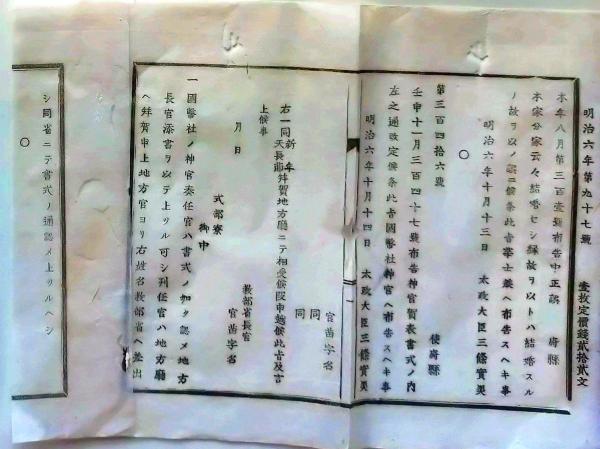 明治六年第九十七號
壹枚定價錢貳拾貳文
本年八月第三百壹號布告中正誤　府縣
本家分家云々結婚セシ緣故ヲ以トハ結婚スル
ノ故ヲ以ノ誤ニ候條此旨華士族ヘ布告スヘキ事
明治六年十月十三日　太政大臣三條實美
○
第三百四拾六號　使府縣
壬申十一月三百四十七號布告神官賀表書式ノ內
左之通改定候條此旨國幣社神官ヘ布告スヘキ事
明治六年十月十四日　太政大臣三條實美
官苗字名
同
同
右一同新年天長節拜賀地方廳ニテ相受候段申越候此旨及言
上候事
月日
敎部省長官
官苗字名
式部寮
御中
一國幣社ノ神官奏任官ハ書式ノ如ク認メ地方
長官添書ヲ以テ上ツル可シ判任官ハ地方廳
ヘ拜賀申上地方官ヨリ右姓名敎部省ヘ差出
シ同省ニテ書式ノ通認メ上ツルヘシ
○